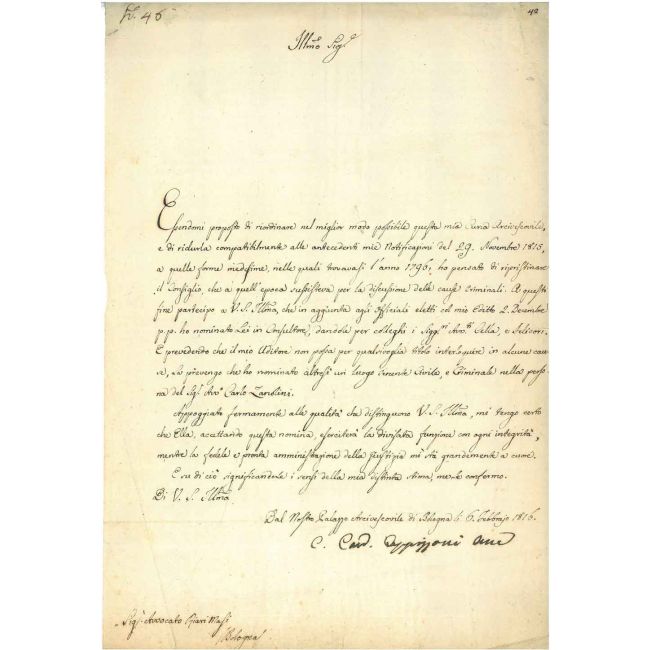 N. 46
42
Illmo Sigr
Essendomi proposto di riordinare nel miglior modo possibile questa mia Curia Arcivescovile,
e di ridurla compatibilmente alle antecedenti mie Notificazioni del 29. Novembre 1815,
a quelle forme medesime, nelle quali trovavasi l'anno 1796, ho pensato di ripristinare
il Consiglio, che a quell'epoca sussisteva per la discussione delle cause criminali. A questo
fine partecipo a V. S. Illma, che in aggiunta agli Officiali eletti col mio Editto 2. Decembre
p. p. ho nominato Lei in Consultore, dandole per colleghi i Siggri Avvti Cella, e Felicori.
E prevedendo che il mio Auditore non possa per qualsivoglia titolo interloquire in alcune cau-
se, La prevengo che ho nominato altresì un luogo tenente Civile, e Criminale nella perso-
na del Sigr Avvo Carlo Zanolini.
Appoggiato fermamente alle qualità che distinguono V. S. Illma, mi tengo certo
che Ella, accettando questa nomina, eserciterà la divisata funzione con ogni integrità,
mentre la fedele e pronta amministrazione della giustizia mi stà grandemente a cuore.
E su di ciò significandole i sensi della mia distinta stima, me Le confermo.
Di V. S. Illma
Dal Nostro Palazzo Arcivescovile di Bologna li 6. Febbrajo 1816.
C. Card. Oppizzoni Arc
Sigr Avvocato Masi
Bologna